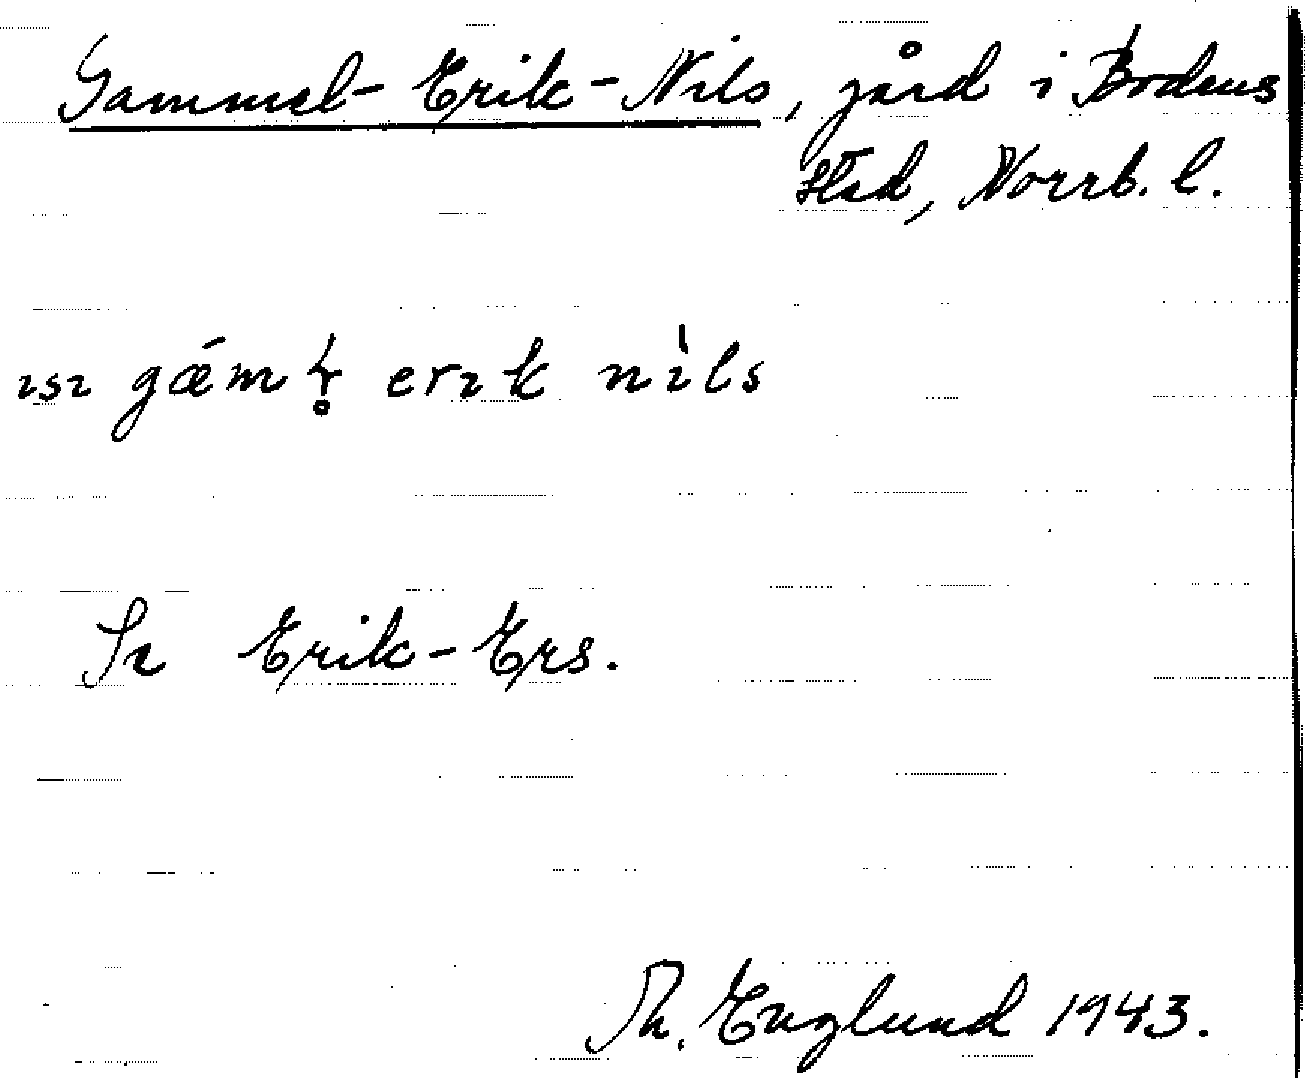 Gammel-Erik-Nils, gård i Bodens
stad, Norrb. l.
ɪsɪ gǽmɽ̥ erɪk nìls
Se Erik-Ers.
Th. Englund 1943.